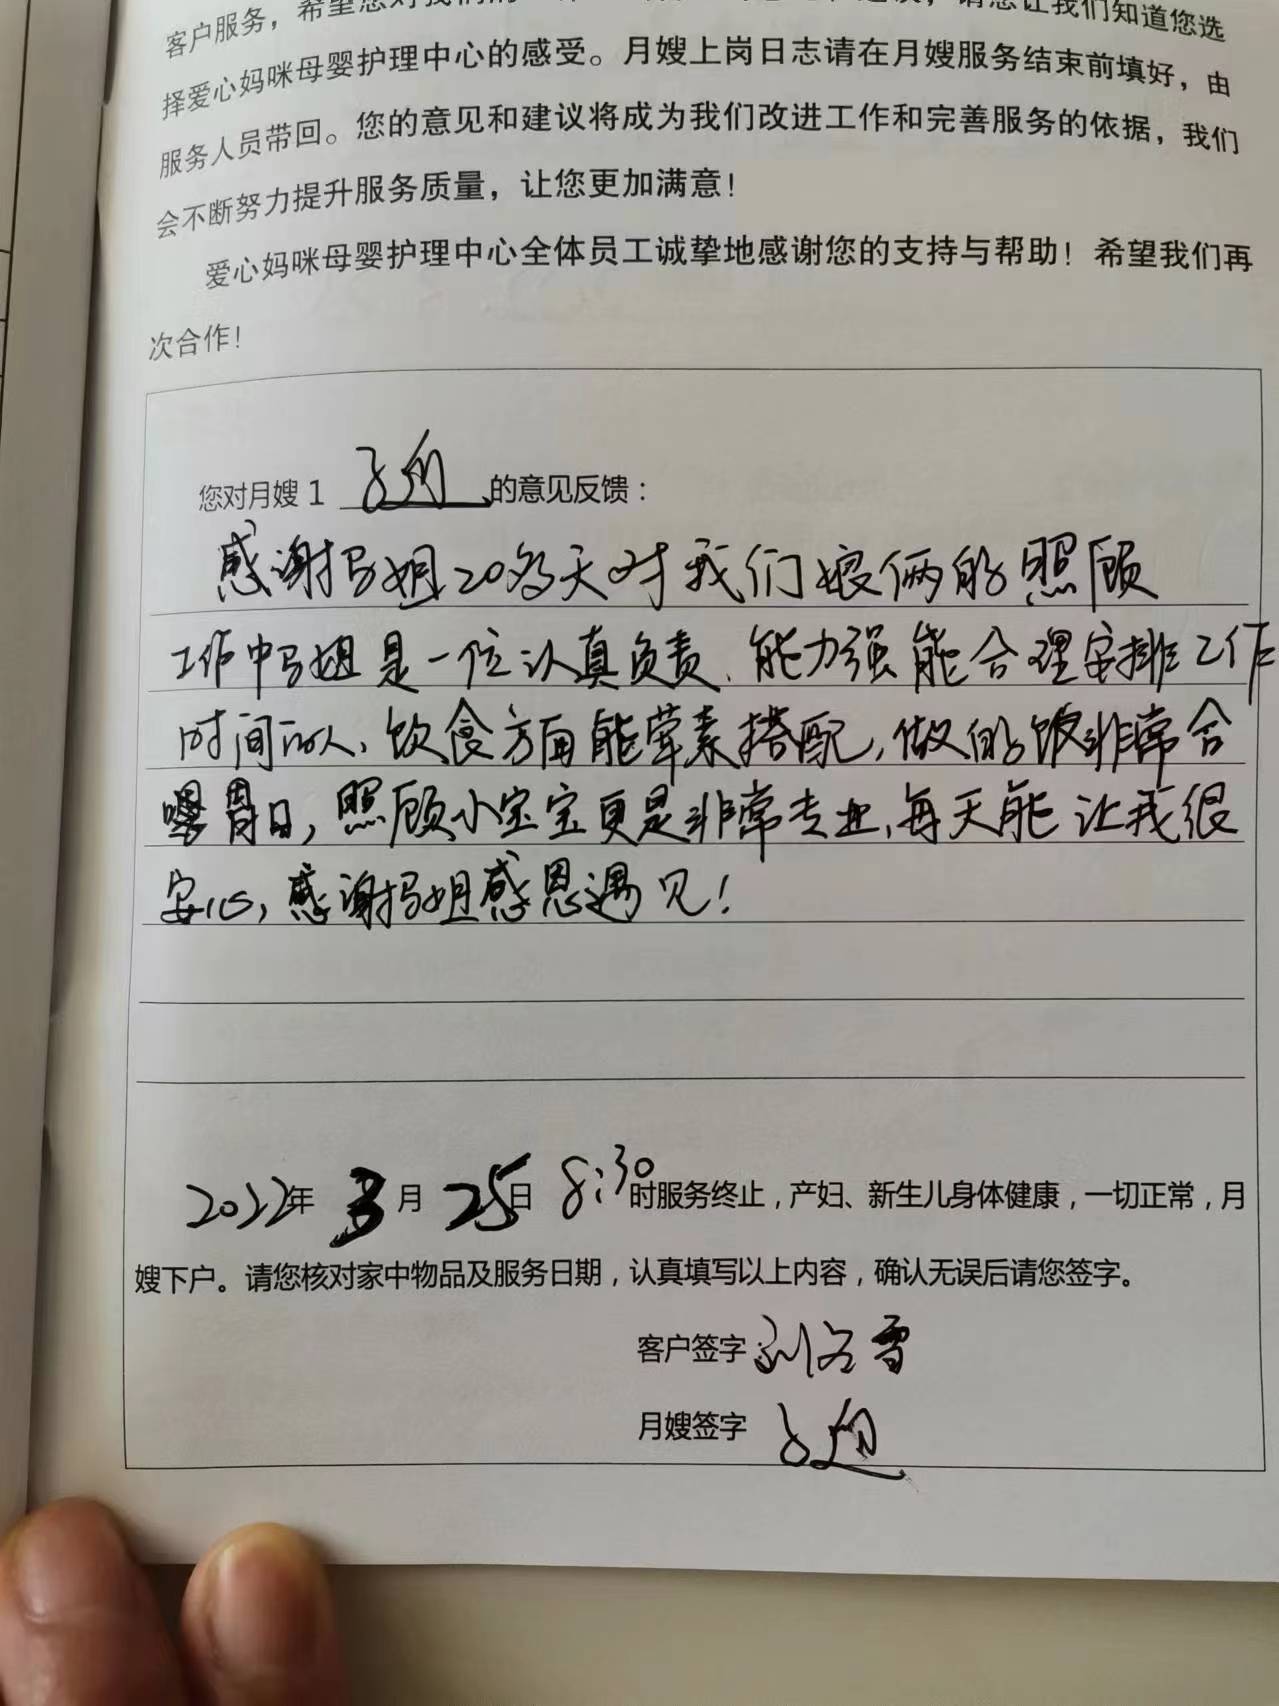 客户服务，希望您对我们的
请您让我们知道您选
择爱心妈咪母婴护理中心的感受。月嫂上岗日志请在月嫂服务结束前填好，由
服务人员带回。您的意见和建议将成为我们改进工作和完善服务的依据，我们
会不断努力提升服务质量，让您更加满意！
爱心妈咪母婴护理中心全体员工诚挚地感谢您的支持与帮助！希望我们再
次合作！
您对月嫂1 的意见反馈：
感谢马姐20多天对我们娘俩的照顾
工作中马姐是一位认真负责、能力强能合理安排工作
时间的人、饮食方面能荤素搭配，做的饭非常合
胃口，照顾小宝宝更是非常专业、每天能让我很
安心，感谢马姐感恩遇见！
2022年 3月 25日 8:30时服务终止，产妇、新生儿身体健康，一切正常，月
嫂下户。请您核对家中物品及服务日期，认真填写以上内容，确认无误后请您签字。
客户签字
月嫂签字